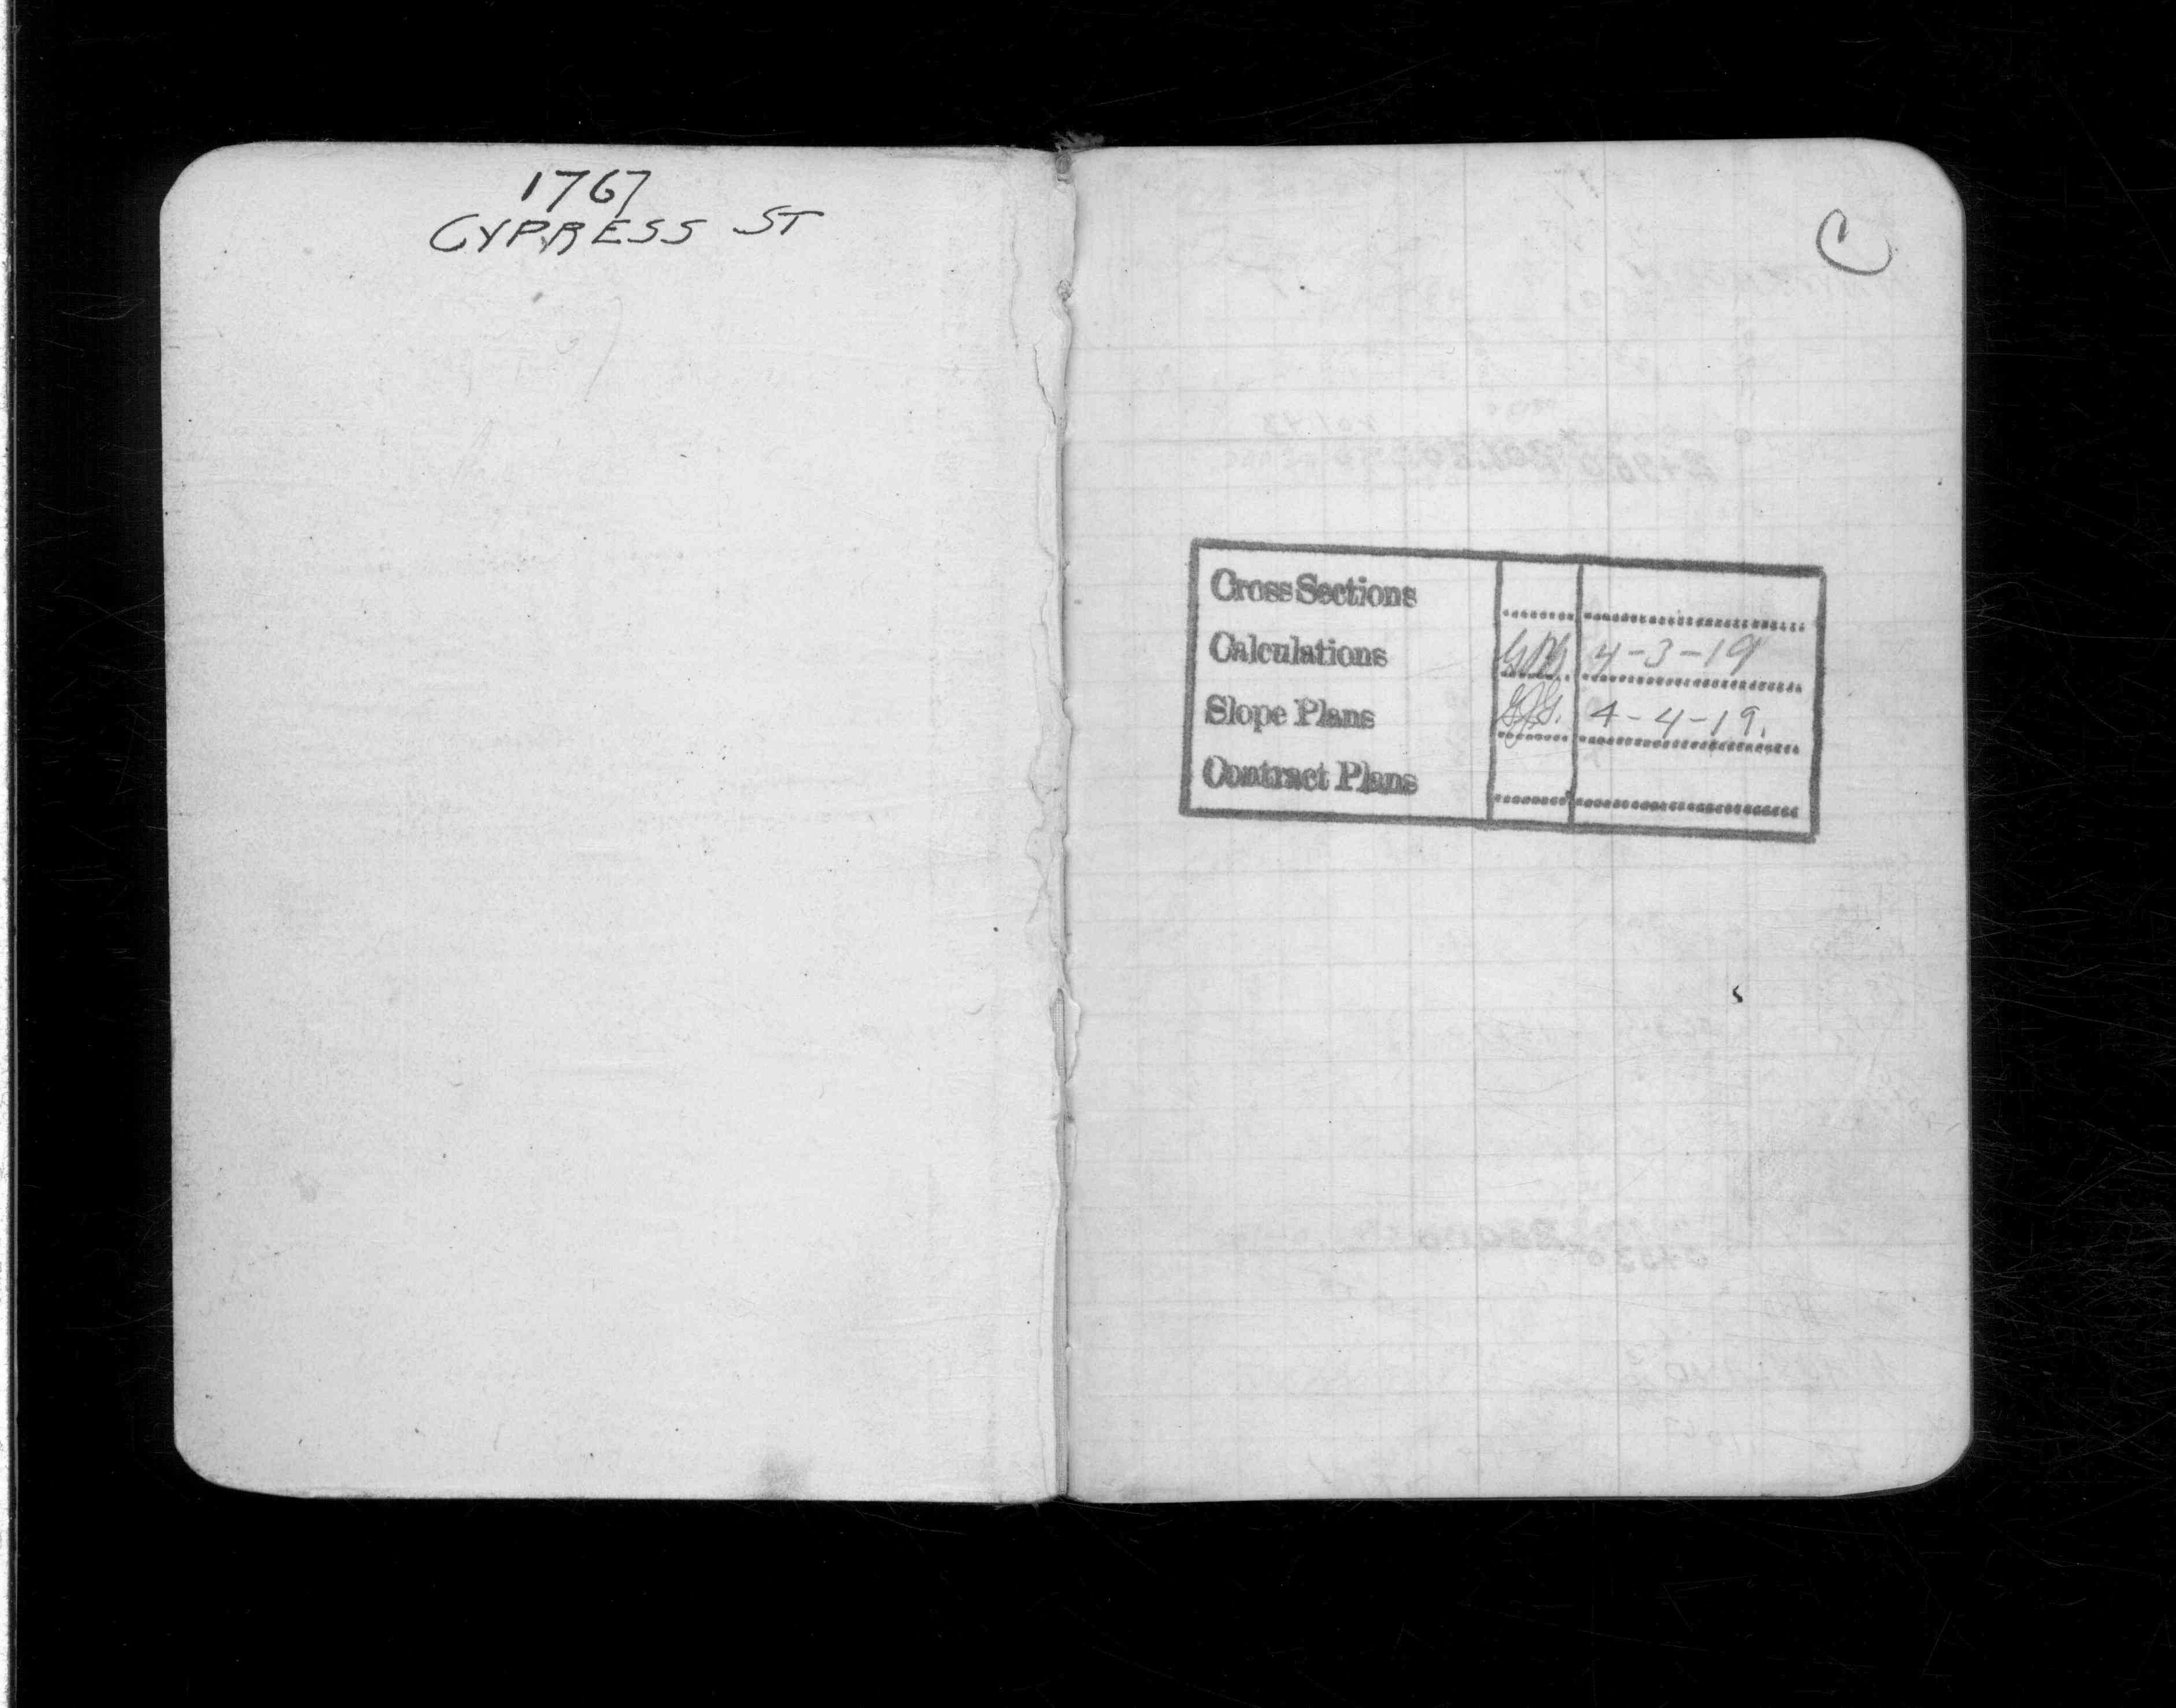 1767
CYPRESS ST
C
Cross Sections
Calculations 4-3-19
Slope Plans 4-4-19.
Contract Plans